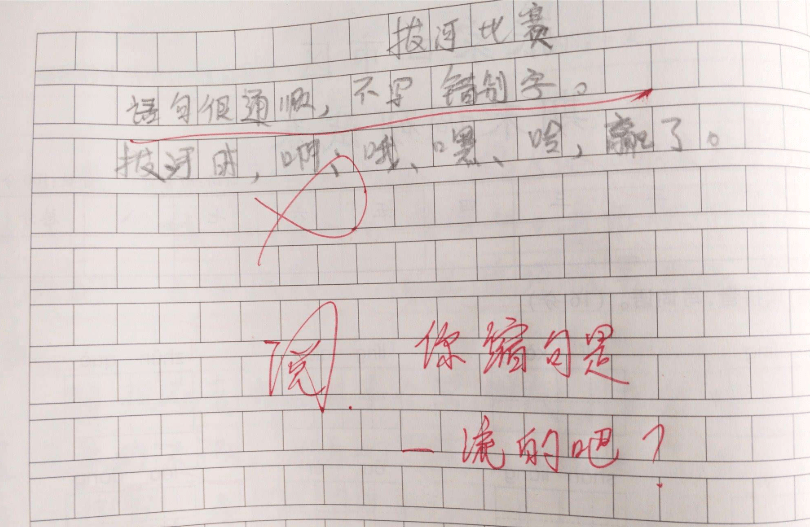 拔河比赛
语句但通顺，不写错别字。
拔河时，啊、哦、嘿、哈，赢了。
阅.
你缩句是
一流的吧？